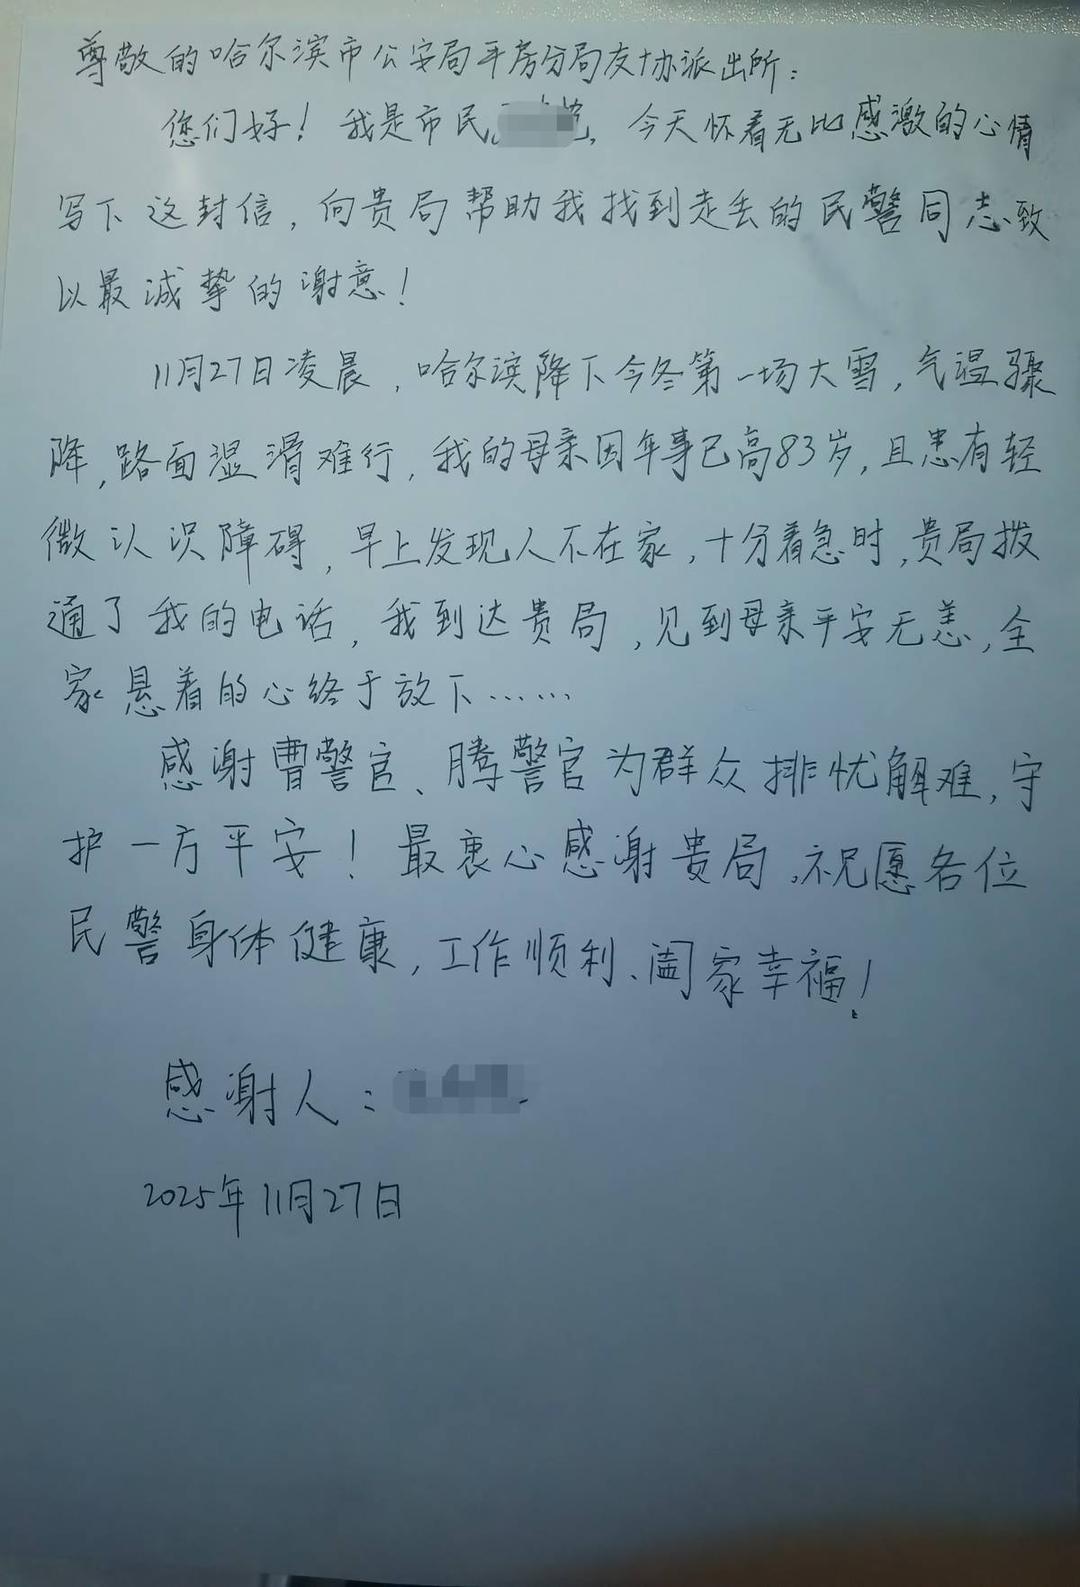 尊敬的哈尔滨市公安局平房分局友协派出所：
您们好！我是市民，今天怀着无比感激的心情
写下这封信，向贵局帮助我找到走丢的民警同志致
以最诚挚的谢意！
11月27日凌晨，哈尔滨降下今冬第一场大雪，气温骤
降，路面湿滑难行，我的母亲因年事已高83岁，且患有轻
微认识障碍，早上发现人不在家，十分着急时，贵局拨
通了我的电话，我到达贵局，见到母亲平安无恙，全
家悬着的心终于放下……
感谢曹警官、腾警官为群众排忧解难，守
护一方平安！最衷心感谢贵局，祝愿各位
民警身体健康，工作顺利、阖家幸福！
感谢人：
2025年11月27日